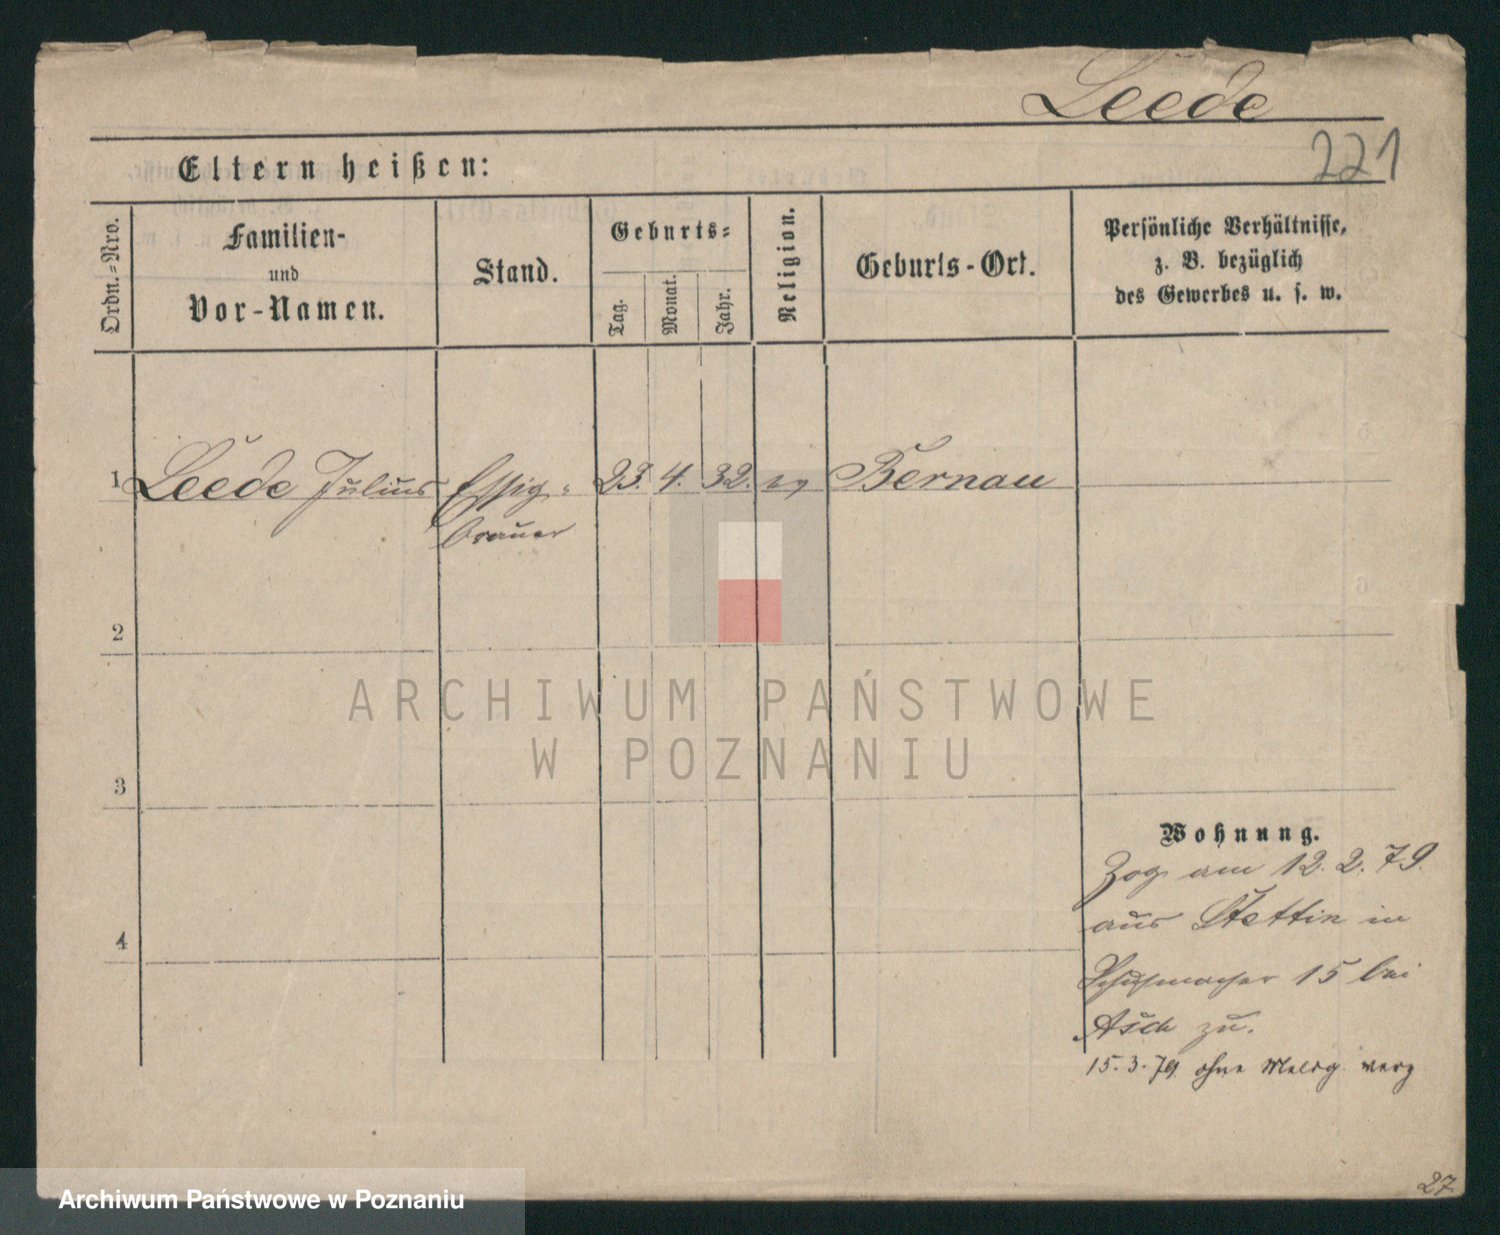 Leede
221
Eltern heißen:
Ordn.-Nro.
Familien-
und
Vor-Namen.
Stand.
Geburts-
Tag.
Monat.
Jahr.
Religion.
Geburts-Ort.
Persönliche Verhältnisse,
z. B. bezüglich
des Gewerbes u. s. w.
1 Leede Julius Essig- 23. 4. 32. ev Bernau
brauer
2
3
4
Wohnung.
Zog am 12. 2. 79.
aus Stettin in
Schuhmacher 15 bei
Asch zu.
15.3.79 ohne Meldg. verz
27
ARCHIWUM PAŃSTWOWE
W POZNANIU
Archiwum Państwowe w Poznaniu